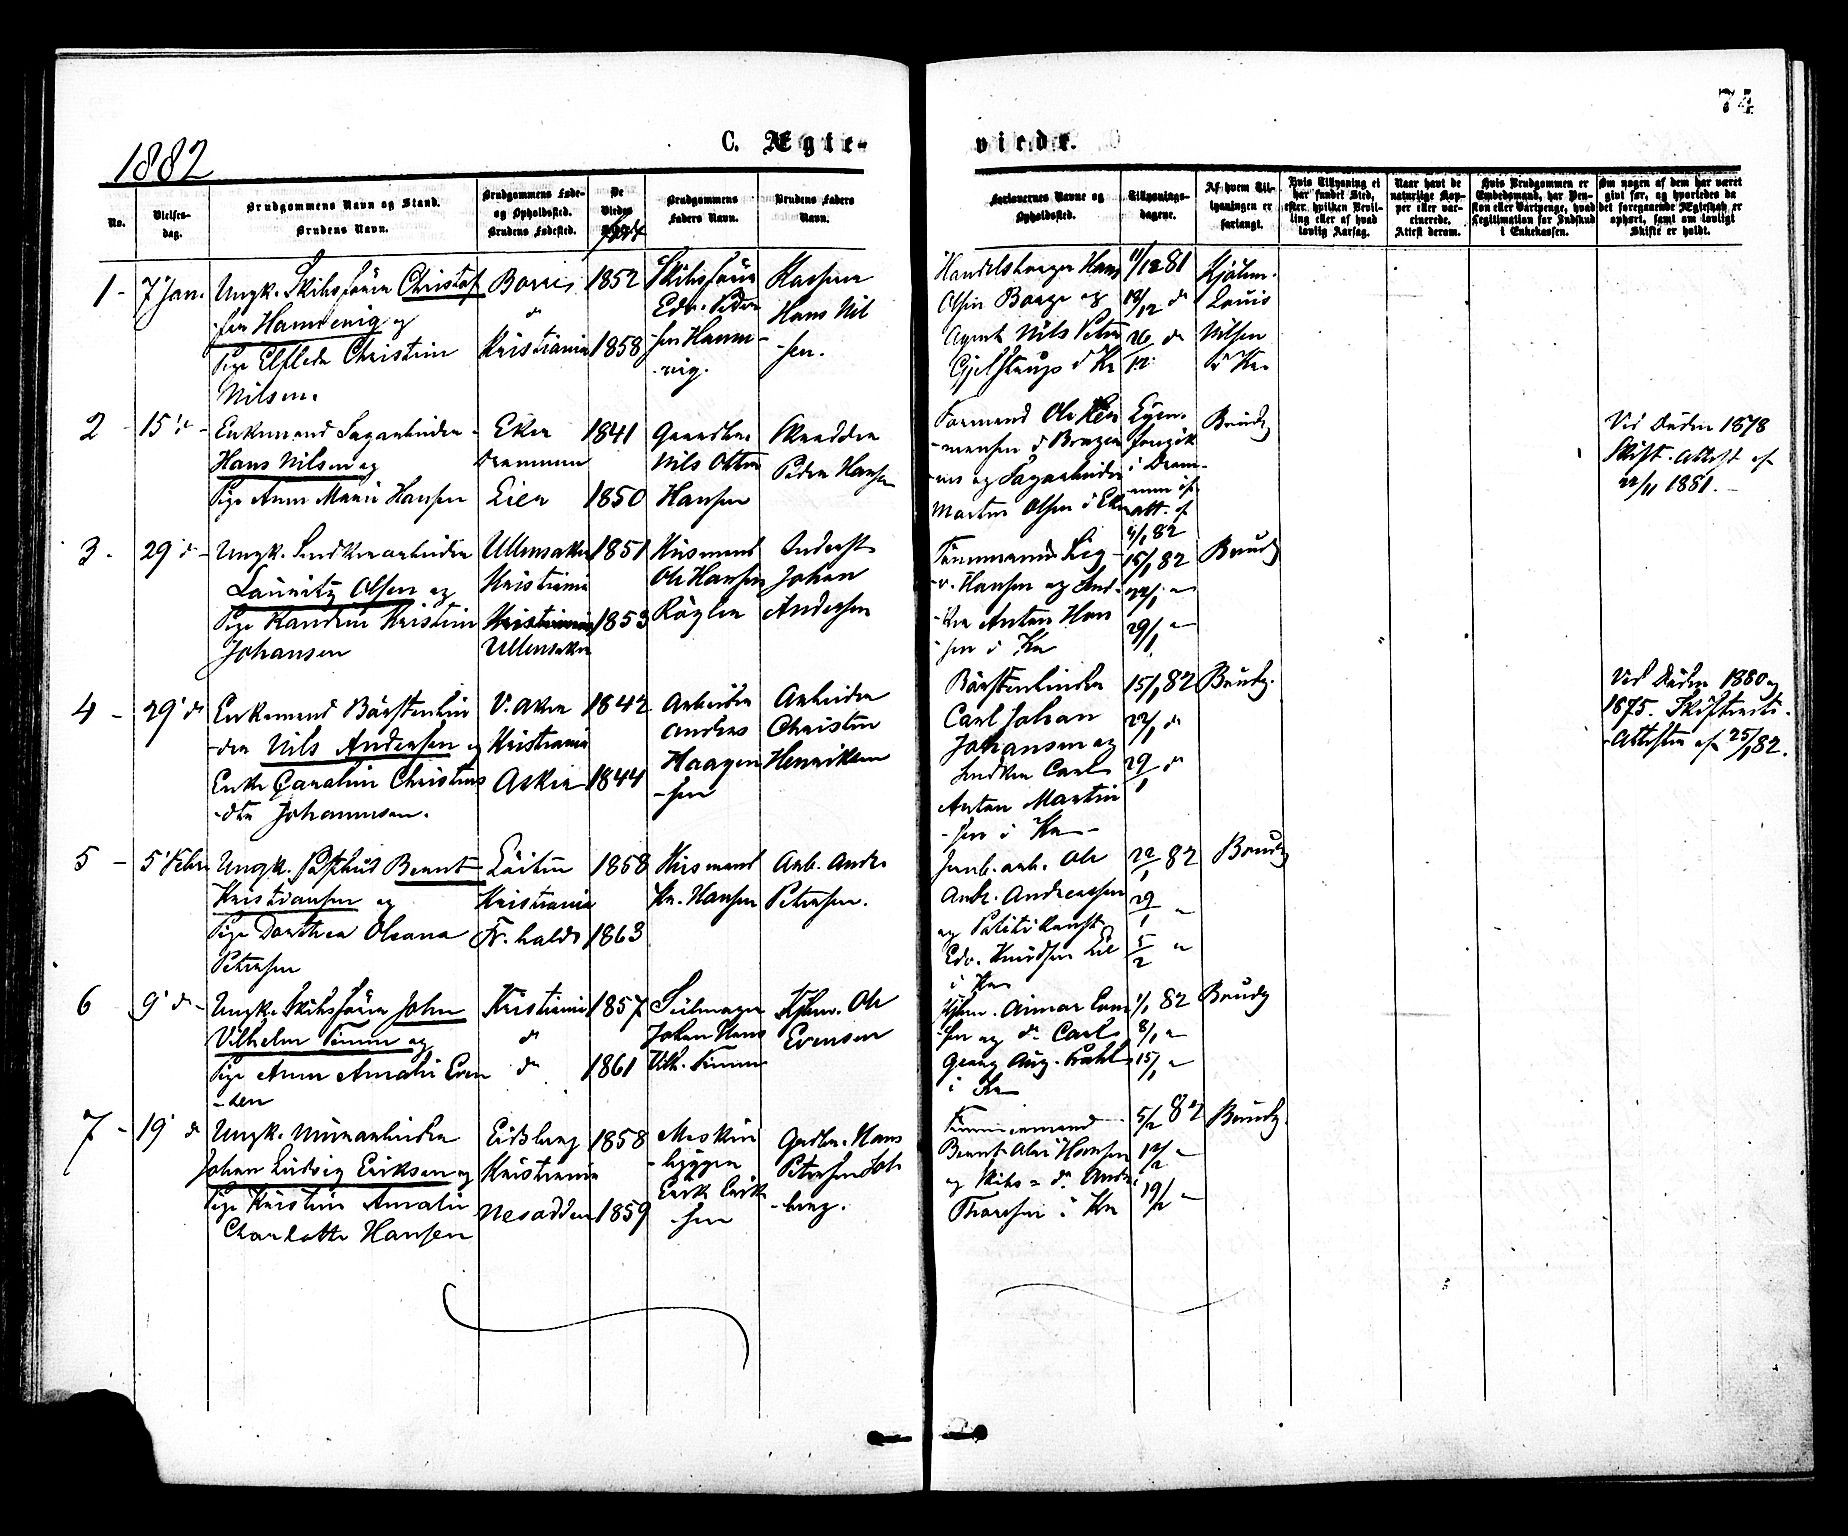 74
1882
C. Ægte-
viede.
No.
Vielses-
dag.
Brudgommens Navn og Stand.
Brudens Navn.
Brudgommens Føde-
og Opholdssted.
Brudens Fødested.
De
Viedes
Brudgommens
Faders Navn.
Brudens Faders
Navn.
Forlovernes Navne og
Opholdssted.
Tillysnings-
dagene.
Af hvem Til-
lysningen er
forlangt.
Hvis Tillysning ei
har fundet Sted,
efter hvilken Bevil-
ling eller af hvad
lovlig Aarsag.
Naar havt de
naturlige Kop-
per eller var-
cinerede.
Attest derom.
Hvis Brudgommen er
Embedsmand, har Pen-
sion eller Vartpenge, hvad
Legitimation for Indskud
i Enkekassen.
Om nogen af dem har været
givt før, og hvorledes da
det foregaaende Ægteskab er
ophørt, samt om lovligt
Skifte er holdt.
1 -
7 Jan.
Ungk. Skibsfører Christof
-fer
og
Pige Elfleda Christine
Nilsen.
Kristiania
1852
1858
Skibsfører
Edv. Peder
-sen
Hans Nil
-sen.
Handelsborger Hans
Olsen og
Agent Nils Peter
i Kr
11/12 81
18/12 do
26/12 do
Louis
Nilsen
i Kr.
2 -
15 do -
Enkemand Sagarbeider
Hans Nilsen og
Pige Anne Marie Hansen
Eker
Drammen
Lier
1841
1850
Gaardbr.
Nils Olsen
Hansen
Skrædder
Peder Hansen
Formand Ole Her
-mansen i Brager
-næs og Sagarbeider
Martin Olsen i Eker
i Dram-
men
att. af
Brudg
Ved Døden 1878
Skift. Attest af
22/11 1881. -
3 -
29 do -
Ungk. Snedkerarbeider
Lauritz Olsen og
Pige Kristine
Johansen
Ullensaker
Kristiania
Kristiania
Ullensaker
1851
1853
Husmand
Ole Hansen
Røgler
Inderst
Johan
Andersen
Tømmermand Sig
-v. Hansen og Sned-
-ker Anton Han
-sen i Kr
15/1 82
22/1 "
29/1 "
Brudg
4 -
29 do
Enkemand Børstenbin
-der Nils Andersen og
Enke Caroline Christens
-dtr Johannesen.
V. Aker
Kristiania
Asker
1842
1844
Arbeider
Anders
Haagen
-sen
Arbeider
Christen
Henriksen
Børstenbinder
Carl Johan
Johansen og
Snedker Carl
Anton Martin
-sen i Kr -
15/1 82
22/1 do
29/1 do
Brudg.
Ved Døden 1880 og
1875. Skifterets-
-Attester af 25/1 82.
5 -
5 Febr
Ungk. Bernt
Kristiansen og
Pige Dorthea Oleana
Petersen
Løiten
Kristiania
Fr. hald
1858
1863
Husmand
Kr. Hansen
Arb. Andr.
Petersen.
Jernb. arb. Ole
Andr. Andreassen
og Politikonst.
Edv. Knudsen Lie
i Kr
22/1 82
29/1 "
5/2 "
Brudg
6 -
9 do -
Ungk. Skibsfører John
Vilhelm Timm og
Pige Anna Amalie Even
-sen
Kristiania
do
do
1857
1861
Seilmager
Johan Hans
Vilh. Timm
Kjhm. Ole
Evensen
Kjhm. Even
-sen og do Carl
Georg Aug.
i Kr
1/1 82
8/1 "
15/1 "
Brudg
7 -
19 do
Ungk. Murarbeider
Johan Ludvig Eriksen og
Pige Kristine Amalie
Charlotte Hansen
Eidsberg
Kristiania
Nesodden
1858
1859
Maskin
-bygger
Erik Erik
-sen
Gaardbr. Hans
Petersen Sol
-berg.
Tømmermand
Bernt Hansen
og Skibs - do Andr.
Thorsen i Kr
5/2 82
12/2 "
19/2 "
Brudg.